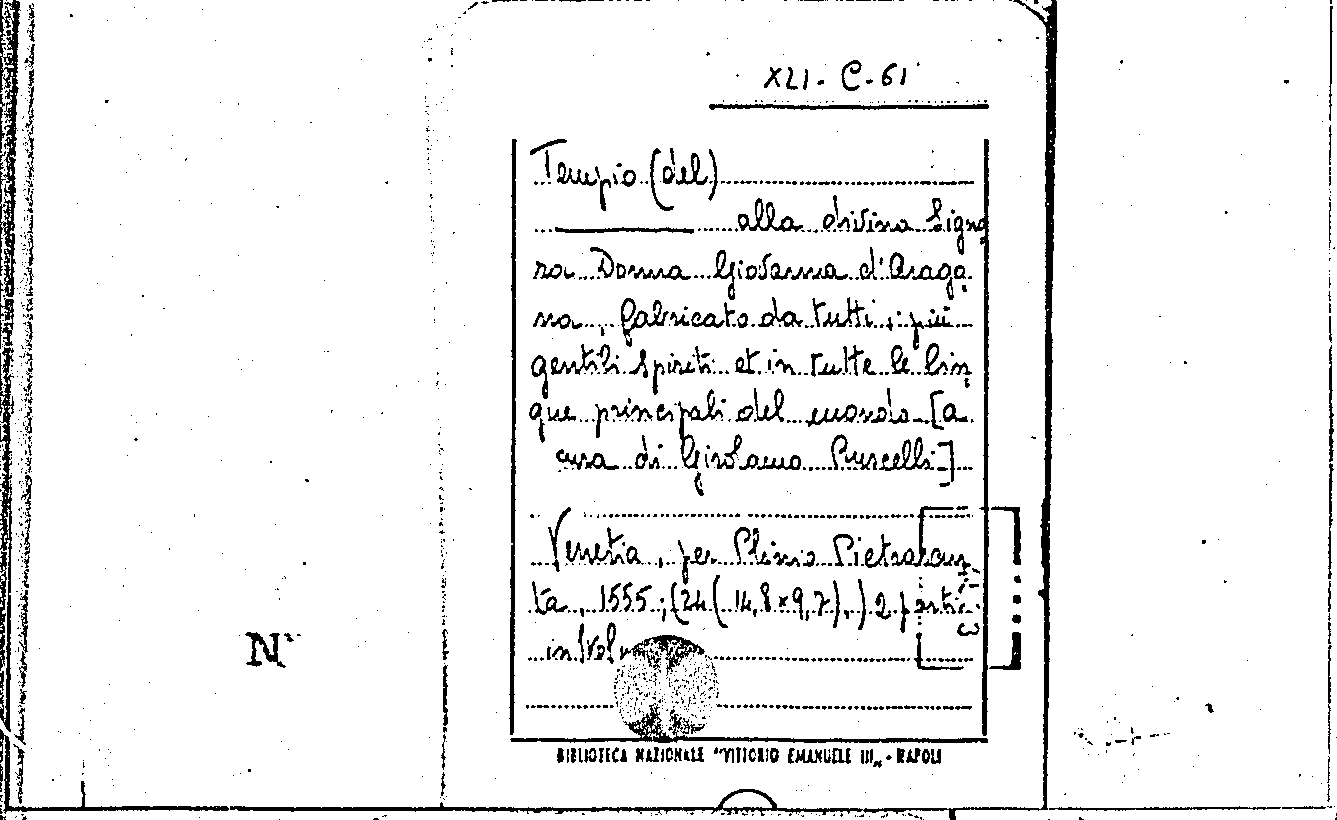 XLI - C - 61
Tempio (del)
alla divina Signo
ra Donna Giovanna d'Arago
na, fabricato da tutti i più
gentili Spiriti et in tutte le lin
gue principali del mondo [a
cura di Girolamo Ruscelli]
Venetia, per Plinio Pietrasan
ta, 1555; (24 (14,8x9,7).) 2 parti
in 1 vol.
N
BIBLIOTECA NAZIONALE "VITTORIO EMANUELE III„ - NAPOLI